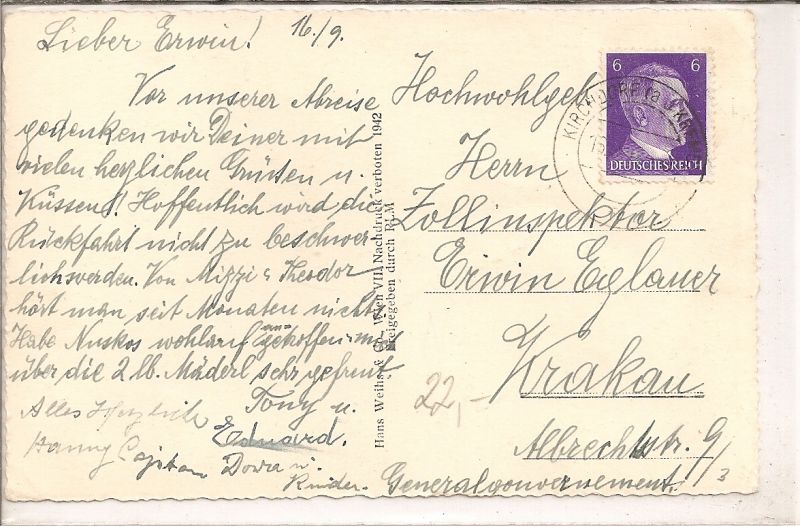 Lieber Erwin! 16./9.
Vor unserer Abreise
gedenken wir Deiner mit
vielen herzlichen Grüssen u.
Küssen! Hoffentlich wird die
Rückfahrt nicht zu beschwer-
lich werden. Von Mizzi & Theodor
hört man seit Monaten nichts.
Habe Nuskos wohlauf angetroffen u. mich
über die 2 lb. Mäderl sehr gefreut
Tony u.
Eduard.
Alles Herzliche
Hanny Dora u.
Kinder.
Hans Weihs & Co., Wien VII. Nachdruck verboten 1942
Freigegeben durch RLM
6 6
DEUTSCHES REICH
KIRCHDORF
Hochwohlgeb
Herrn
Zollinspektor
Erwin Eglauer
Krakau
Albrechtstr. 9/3
Generalgouvernement.
22,-